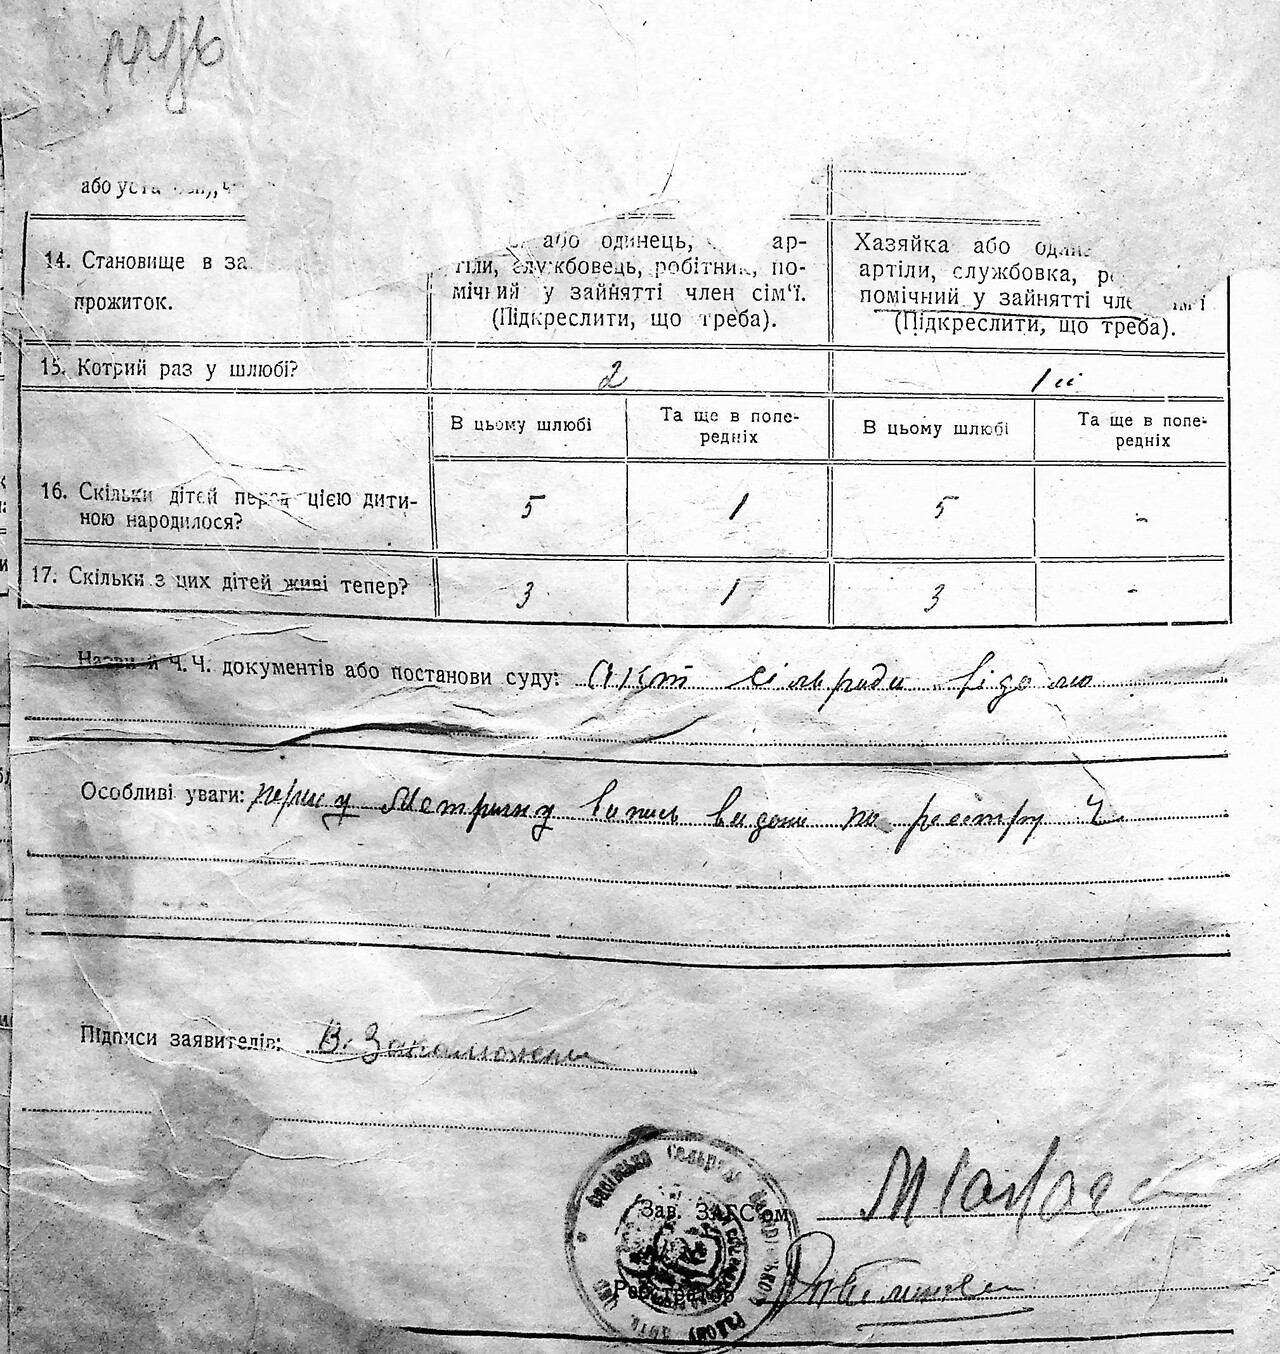 або
14. Становище в за
прожиток.
або одинець, ар-
тіли, службовець, робітник, по-
мічний у зайнятті член сім'ї.
(Підкреслити, що треба).
Хазяйка або
артіли, службовка,
помічний у зайнятті
(Підкреслити, що треба).
15. Котрий раз у шлюбі?
2
1 й
В цьому шлюбі
Та ще в попе-
редніх
В цьому шлюбі
Та ще в попе-
редніх
16. Скільки дітей перед цією дити-
ною народилося?
5
1
5
-
17. Скільки з цих дітей живі тепер?
3
1
3
-
Назви й Ч.Ч. документів або постанови суду: Акт сільради відомо
Особливі уваги: першу метричну випись видано по реєстру Ч
Підписи заявителів: В.
Зав. ЗАГС'ом
Реєстратор